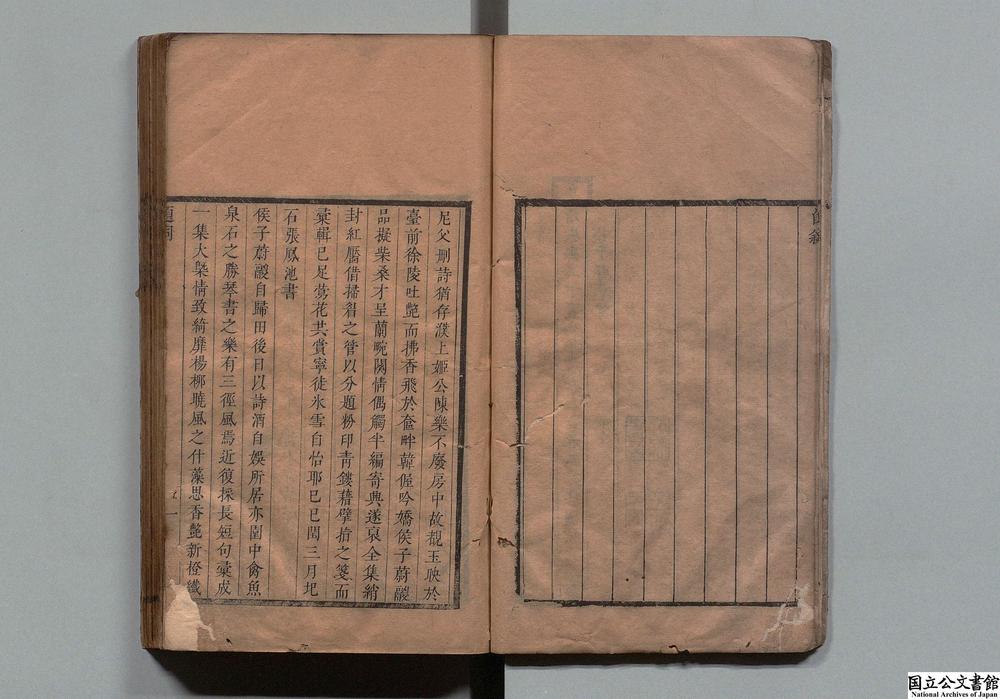 尼父刪詩猶存濮上姬公陳樂不廢房中故靚玉映於
臺前徐陵吐艷而拂香飛於奩畔韓偓吟嬌侯子蔚䰀
品擬柴桑才呈蘭畹閑情偶觸半編寄興遂裒全集綃
封紅靨借掃眉之管以分題粉印青鏤藉擘指之箋而
彙輯已足鶯花共賞寧徒氷雪自怡耶己巳閏三月圯
石張鳳池書
侯子蔚䰀自歸田後日以詩酒自娛所居亦園中禽魚
泉石之勝琴書之樂有三徑風焉近復採長短句彙成
一集大槩情致綺靡楊柳曉風之什藻思香艷新橙纖
題詞
一
國立公文書館
National Archives of Japan